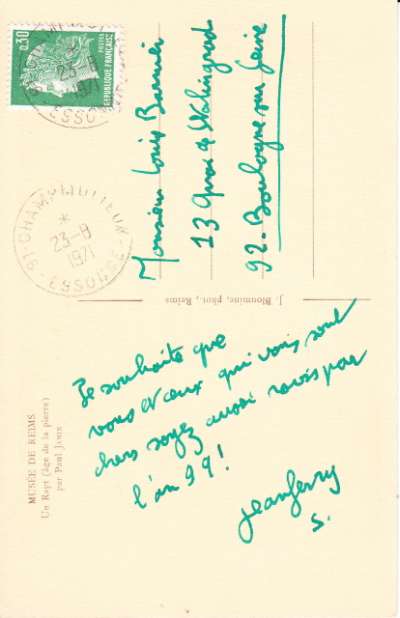 0.30
POSTES
RÉPUBLIQUE FRANÇAISE
23-8
1971
91-CHAMPMOTTEUX-ESSONNE
*
23-8
1971
Monsieur Louis
13 Quai de Stalingrad
92. Boulogne sur Seine
J. Bloumine, phot., Reims
MUSÉE DE REIMS
Un Rapt (âge de la pierre)
par Paul Jamin
Je souhaite que
vous et ceux qui vous sont
chers soyez aussi ravis par
l'an 99!
Jean Ferry
S.